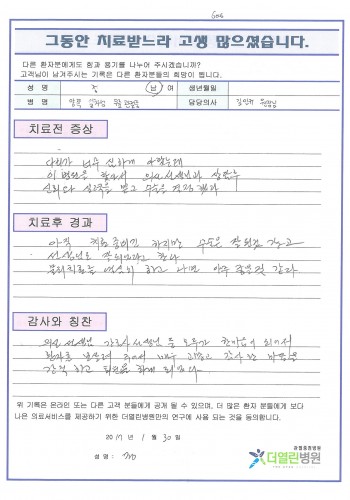 그동안 치료받느라 고생 많으셨습니다.
다른 환자분에게도 힘과 용기를 나누어 주시겠습니까?
고객님이 남겨주시는 기록은 다른 환자분들의 희망이 됩니다.
성 명 남 여 생년월일
병 명 담당의사 원장님
치료전 증상
다리가 너무 심하게 아팠는데
이 병원을 찾아서 의사선생님과 상담후
신뢰와 믿고 수술을 결정했다
치료후 경과
아직 치료중이긴 하지만 수술은 잘된것 같고
선생님도 잘되었다고 한다
물리치료를 열심히 하고 나면 아주 좋을것 같다
감사와 칭찬
의사선생님 간호사선생님 들 모두가 한마음이 되어서
환자를 보살펴 주셔서 매우 고맙고 감사한 마음을
간직하고 퇴원을 하게 되었다
위 기록은 온라인 또는 다른 고객 분들에게 공개 될 수 있으며, 더 많은 환자 분들에게 보다
나은 의료서비스를 제공하기 위한 더열린병원만의 연구에 사용 되는 것을 동의합니다.
2017 년 1 월 30 일
성 명 :
관절중점병원
더열린병원